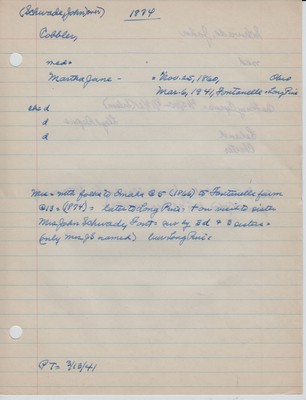 (Schwade, John, over) 1874
Cobbler,
med =
Martha Jane - * Nov. 25, 1860, Ohio
Mar. 6, 1941, Fontanelle = Long Pine
ch = d
d
d
Mrs = with folks to Omaha @ 5 (1866) to Fontanelle farm
@ 13 = (1874) = later to Long Pine: + on visit to sister
Mrs John Schwade, Font = sur by 2d + 2 sisters =
(only Mrs JS named) bur Long Pine:
PT = 3/13/41